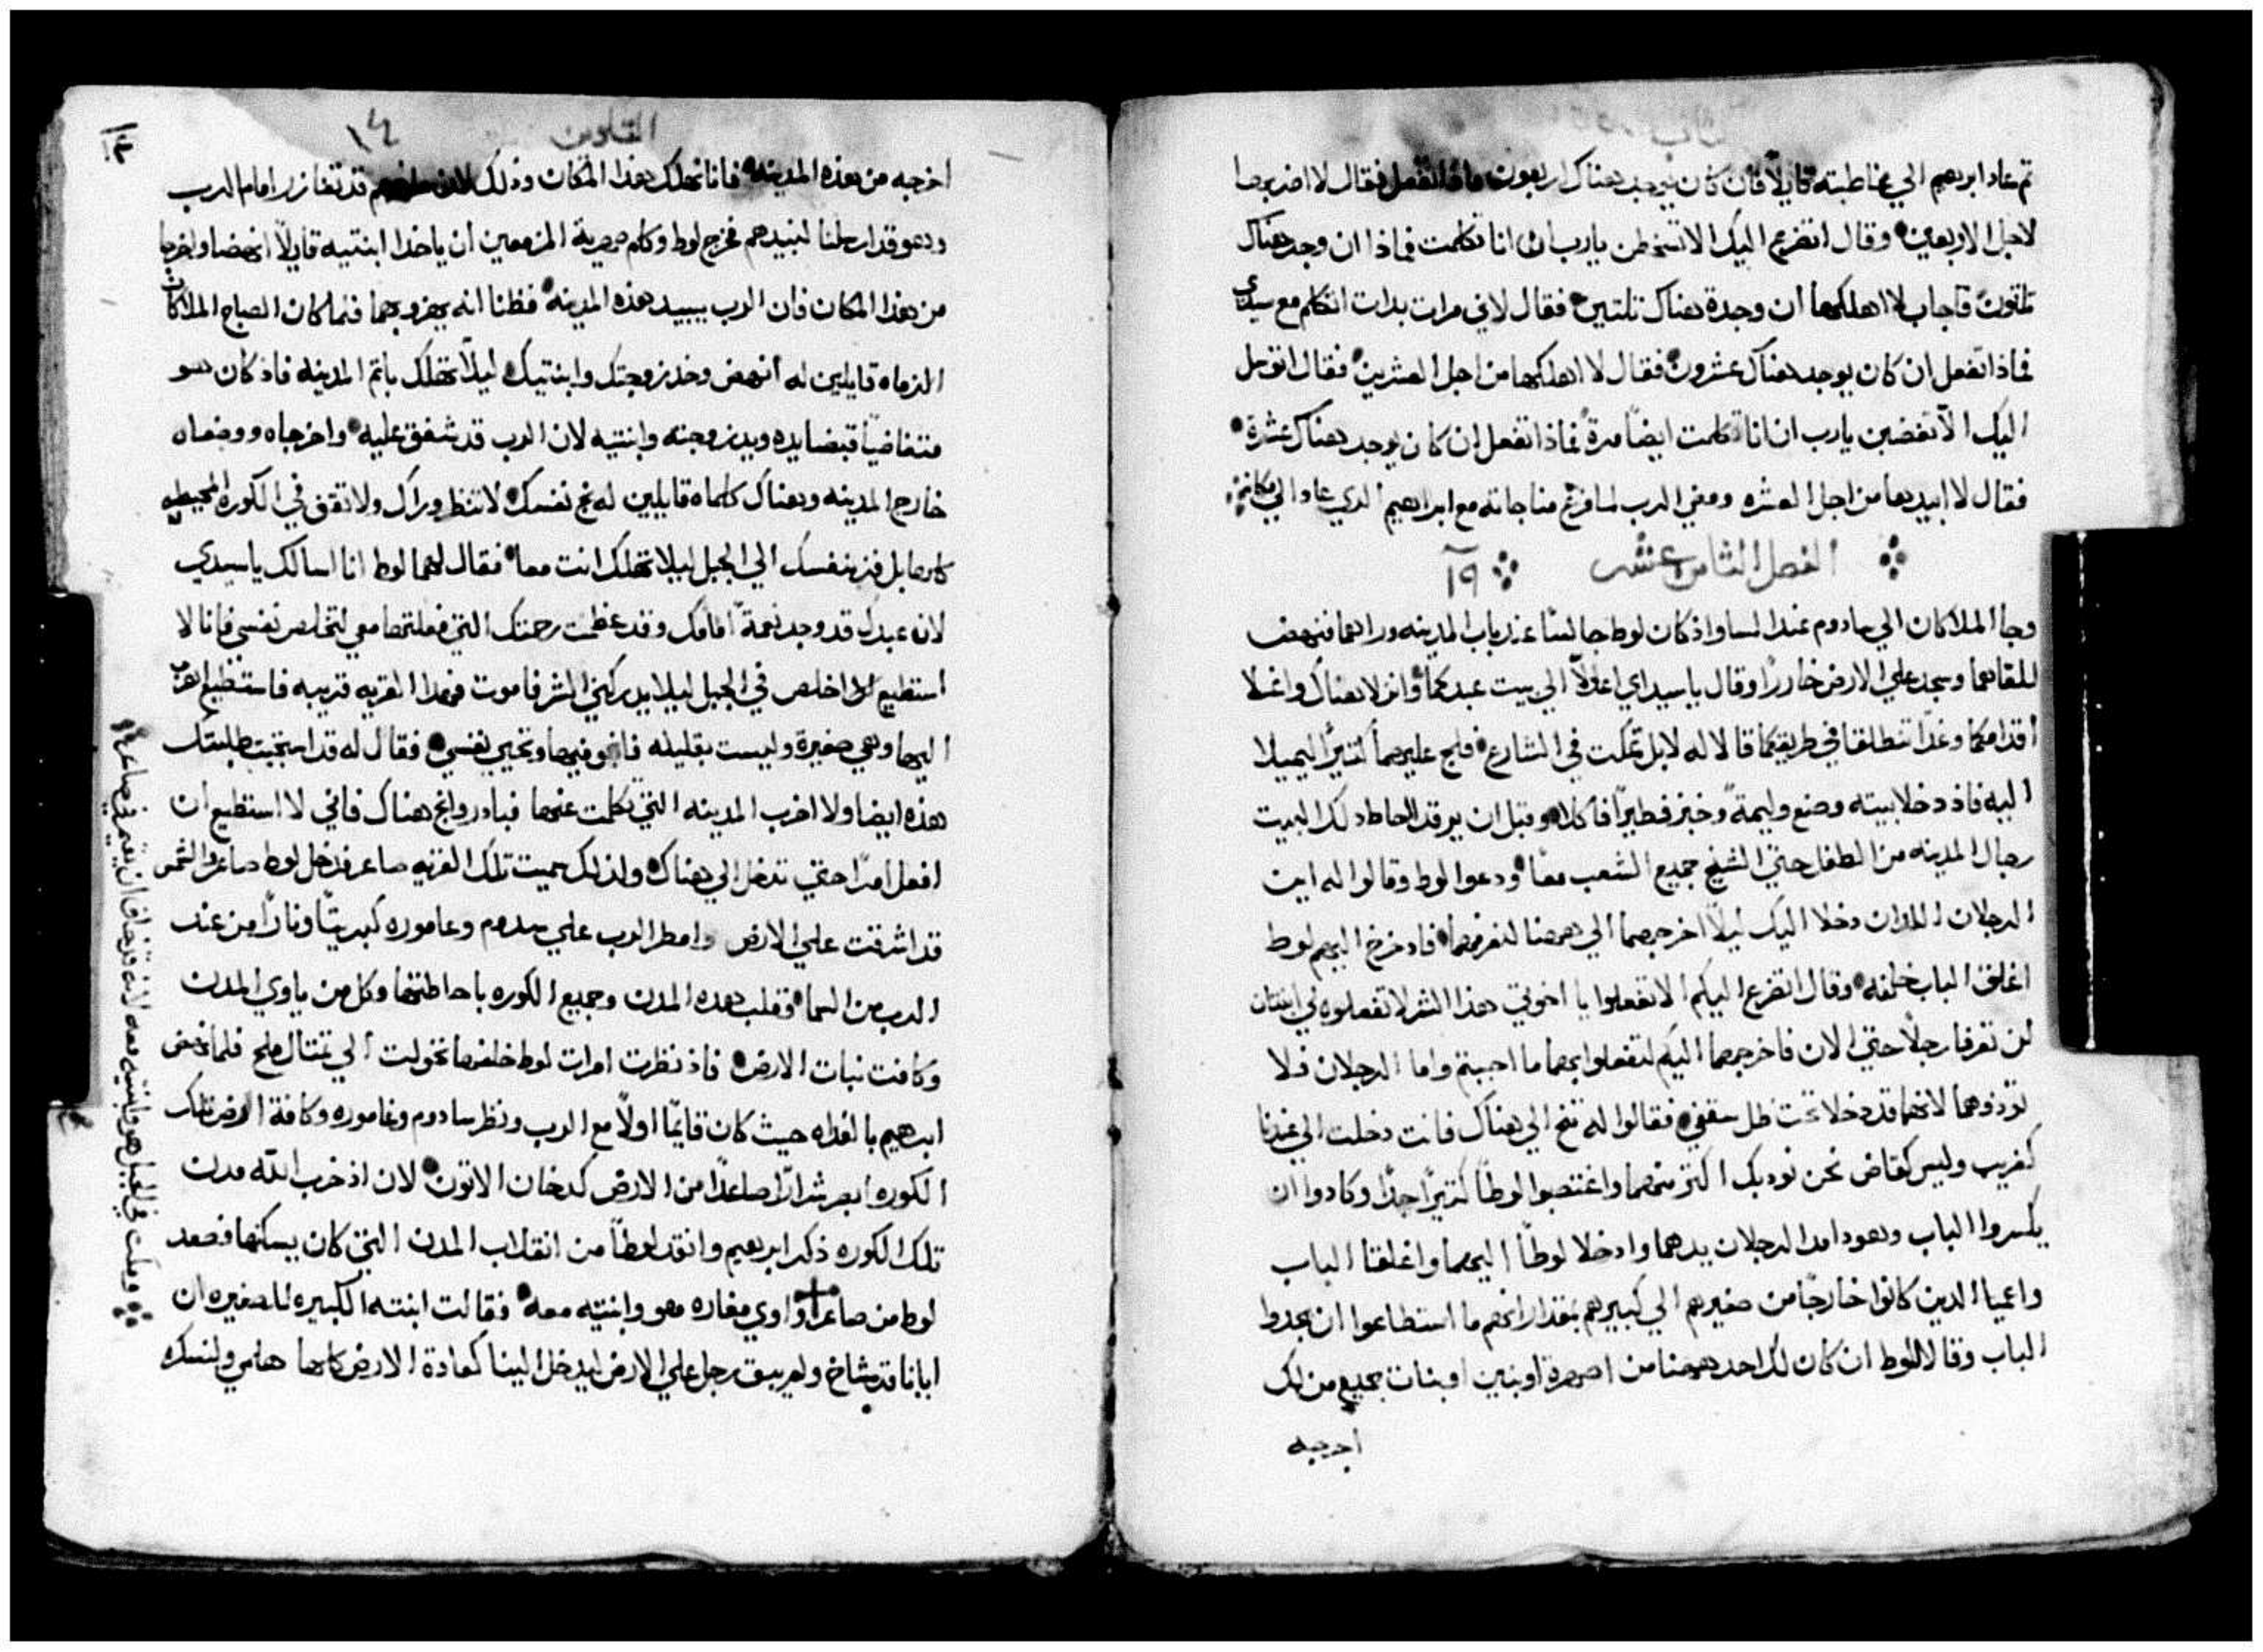 ثم عاد ابرهيم الي مخاطبته قايلاً فان كان يوجد هناك اربعون ماذا تفعل فقال لا اضربها
لاجل الاربعين وقال اتضرع اليك الا تسخطن يارب ان انا تكلمت فماذا ان وجد هناك
ثلثون فاجاب لا اهلكها ان وجدة هناك ثلثين فقال لاني مرات بدات اتكلم مع سيدي
فماذا تفعل ان كان يوجد هناك عشرون فقال لا اهلكها من اجل العشرين فقال اتوسل
اليك الا تغضبن يارب ان انا تكلمت ايضاً مرةً فماذا تفعل ان كان يوجد هناك عشرة
فقال لا ابيدها من اجل العشره ومضي الرب لما فرغ مناجاته مع ابراهيم الدي عاد الي مكانه
الفصل الثامن عشر ١٩
وجا الملاكان الي سادوم عند المسا واذ كان لوط جالسًا عند باب المدينه وراهما فنهض
للقاهما وسجد علي الارض خاررًا وقال يا سيداي اعدلا الي بيت عبدكما وانزلا هناك واغسلا
اقدامكما وغدًا تنطلقا في طريقكما قالا له لا بل نمكت في الشارع فلج عليهما كتيرًا ليميلا
اليه فاذ دخلا بيته وصنع وليمةً وخبز فطيرًا فاكلا وقبل ان يرقدا احاط دلك البيت
رجال المدينه من الطفل حتي الشيخ جميع الشعب معًا ودعوا لوط وقالوا له اين
الرجلان اللدان دخلا اليك ليلاً اخرجهما الي ههنا لنعرفهما فاد خرج اليهم لوط
اغلق الباب خلفه وقال اتضرع اليكم الا تفعلوا يا اخوتي هذا الشر لا تفعلوه لي ابنتان
لن تعرفا رجلاً حتي الان فاخرجهما اليكم لتفعلوا بهما ما احببتم واما الرجلان فلا
تودوهما لانهما قد دخلا تحت ظل سقفي فقالوا له تنح الي هناك فانت دخلت الي عندنا
كغريب وليس كقاض نحن نوديك اكتر منهما واغتصبوا لوطاً كتيرًا جدًا وكادوا ان
يكسروا الباب وهودا مدا الرجلان يدهما وادخلا لوطاً اليهما واغلقا الباب
واعميا الدين كانوا خارجًا من صغيرهم الي كبيرهم بمقدار انهم ما استطاعوا ان يجدوا
الباب وقالا للوط ان كان لك احد ههنا من اصهرة او بنين او بنات جميع من لك
اخرجه
القلوس
١٤
اخرجه من هذه المدينه فاننا نهلك هذا المكان وذلك لان قد تعازر امام الرب
وهو قد ارسلنا لنبيدهم فخرج لوط وكلم صهريه المزمعين ان ياخدا ابنتيه قايلاً انهضا واخرجا
من هذا المكان فان الرب يبيد هذه المدينه فظنا انه يهزو بهما فلما كان الصباح الملاكان
الزماه قايلين له انهض وخد زوجتك وابنتيك ليلا تهلك باثم المدينه فاذ كان هو
متغاضيًا قبضا يده ويد زوجته وابنتيه لان الرب قد شفق عليه واخرجاه ووضعاه
خارج المدينه وهناك كلماه قايلين له نج نفسك لا تنظر وراك ولا تقف في الكوره المحيطه
كلها بل فز بنفسك الي الجبل ليلا تهلك انت معا فقال لهما لوط انا اسالك يا سيدي
لان عبدك قد وجد نعمةً امامك وقد عظمت رحمتك التي فعلتها معي لتخلص نفسي فانا لا
استطيع ان اخلص في الجبل ليلا يدركني الشر فاموت فهذا القريه قريبه فاستطيع الهرب
اليها وهي صغيرة وليست بقليله فانجو فيها وتحيي نفسي فقال له قد استجبت طلبتك
هذه ايضا ولا اخرب المدينه التي تكلمت عنها فبادر وانج هناك فاني لا استطيع ان
افعل امرًا حتي تدخل الي هناك ولذلك سميت تلك القريه صاعر فدخل لوط صاعر والشمس
قد اشرقت علي الارض وامطر الرب علي سدوم وعاموره كبريتًا ونارًا من عند
الرب من السما وقلب هده المدن وجميع الكوره باحاطتها وكل من ياوي المدن
وكافت نبات الارض فاذ نظرت امرات لوط خلفها تحولت الي تمتال ملح فلما نهض
ابرهيم بالغداه حيث كان قايمًا اولاً مع الرب ونظر سادوم وغاموره وكافة الارض تلك
الكوره ابصر شرارًا صاعدًا من الارض كدخان الاتون لان اذ خرب الله مدن
تلك الكوره ذكر ابرهيم وانقد لوطاً من انقلاب المدن التي كان يسكنها فصعد
لوط من صاعر واوي مغاره هو وابنتيه معه فقالت ابنته الكبيره للصغيره ان
ابانا قد شاخ ولم يبق رجل علي الارض ليدخل الينا كعادة الارض كلها هلمي ولنسكره
ومكث في الجبل هو وابنتيه معه لانه قد خاف ان يقيم في صاعر